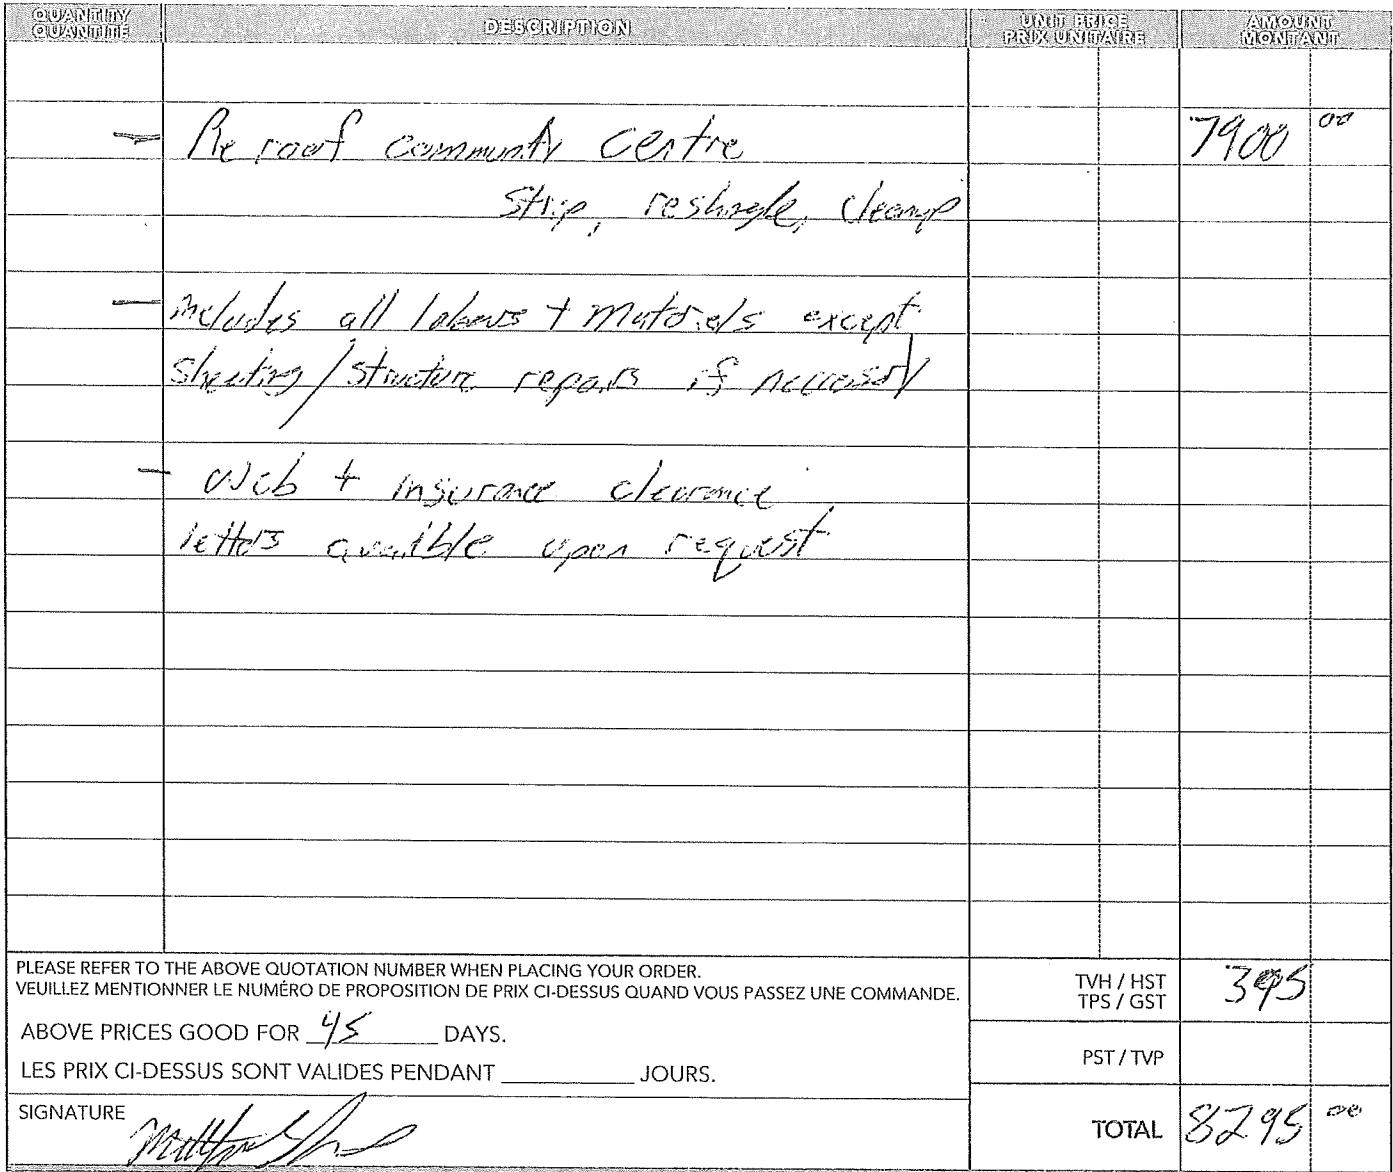 QUANTITY
QUANTITÉ
DESCRIPTION
UNIT PRICE
PRIX UNITAIRE
AMOUNT
MONTANT
- Re roof community centre 7900 00
strip, reshingle, cleanup
- includes all labours + materials except
sheeting/structure repairs if necessary
- Wcb + insurance clearance
letters availble upon request
PLEASE REFER TO THE ABOVE QUOTATION NUMBER WHEN PLACING YOUR ORDER.
VEUILLEZ MENTIONNER LE NUMÉRO DE PROPOSITION DE PRIX CI-DESSUS QUAND VOUS PASSEZ UNE COMMANDE.
TVH / HST
TPS / GST
395
ABOVE PRICES GOOD FOR 45 DAYS.
LES PRIX CI-DESSUS SONT VALIDES PENDANT ________ JOURS.
PST / TVP
SIGNATURE
TOTAL 8295 00